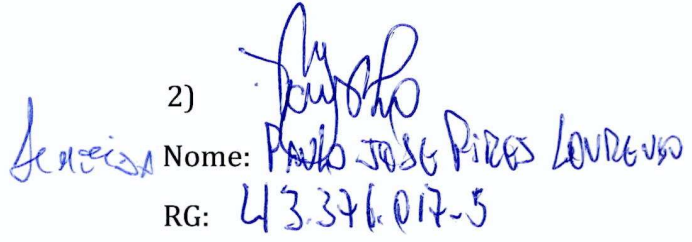 2)
Nome: PAULO JOSE PIRES LOURENSO
RG: 43.376.017-5